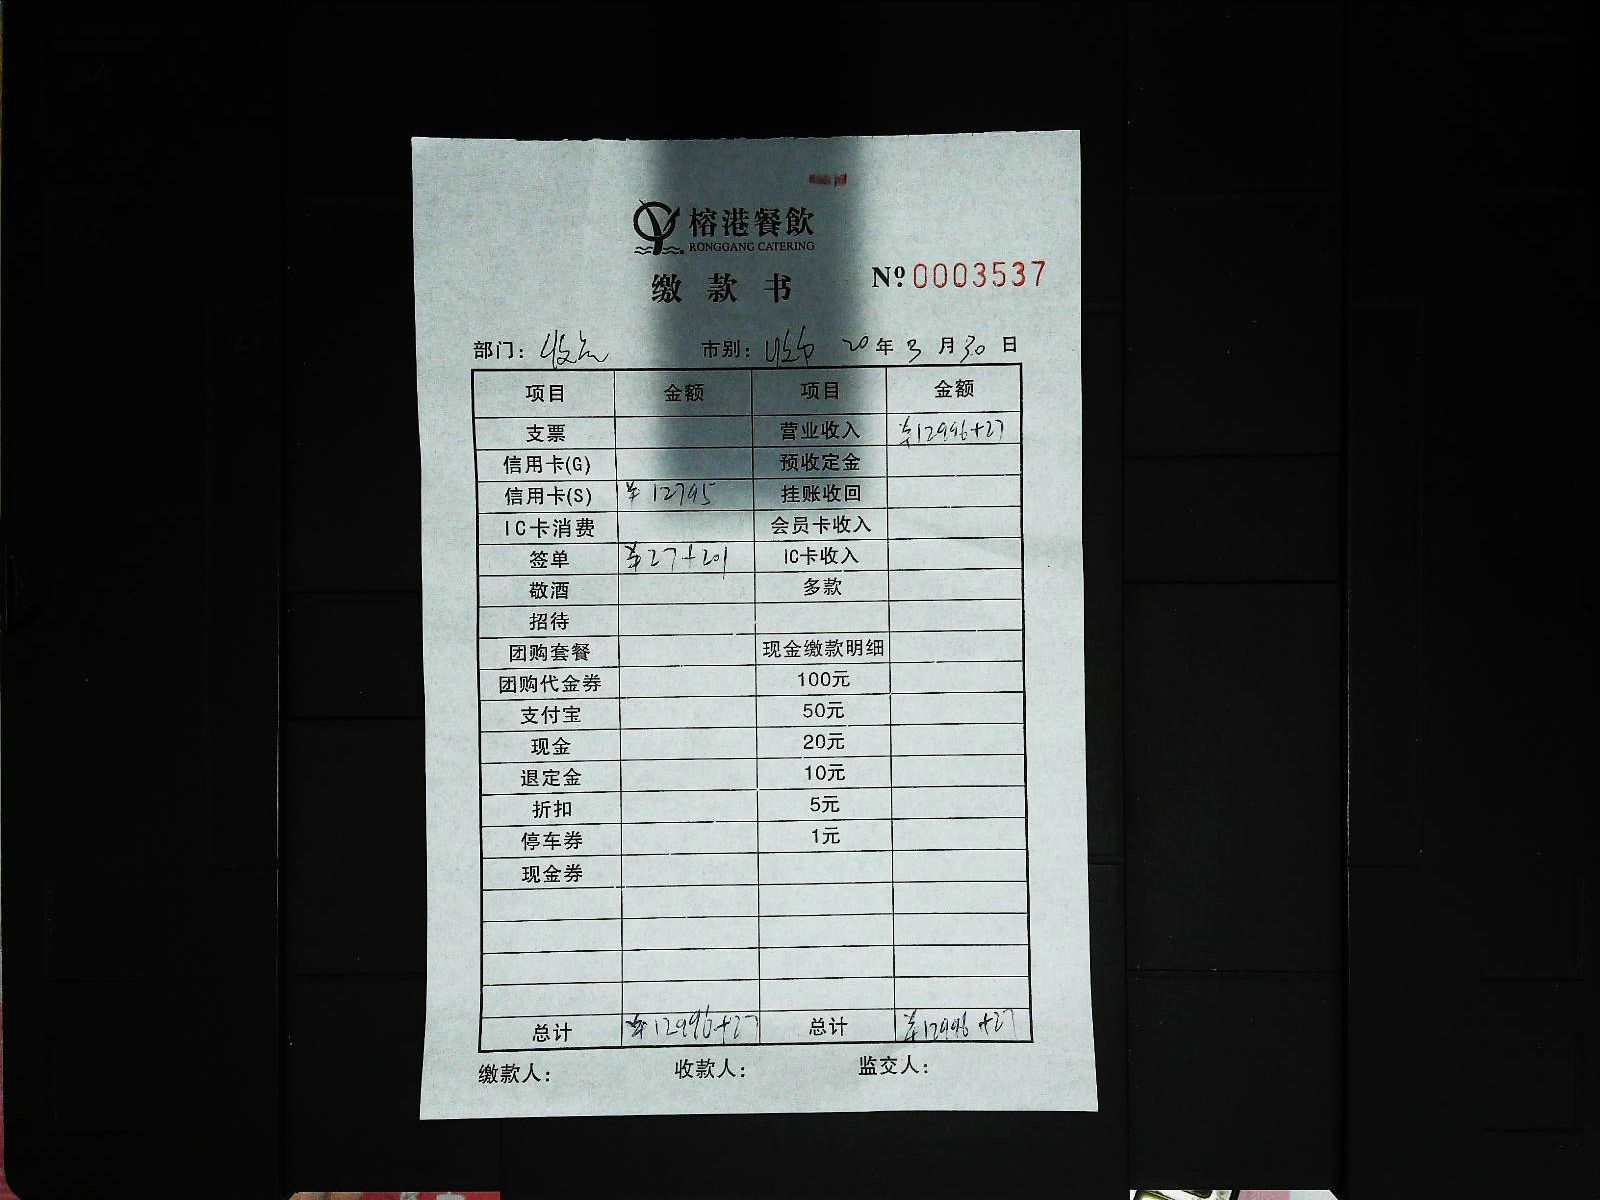 榕港餐飲
RONGGANG CATERING
缴款书
№ 0003537
部门： 市别： 20年3月30日
项目 金额 项目 金额
支票 营业收入 ¥12996+27
信用卡(G) 预收定金
信用卡(S) ¥12795 挂账收回
IC卡消费 会员卡收入
签单 ¥27+201 IC卡收入
敬酒 多款
招待
团购套餐 现金缴款明细
团购代金券 100元
支付宝 50元
现金 20元
退定金 10元
折扣 5元
停车券 1元
现金券
总计 ¥12996+27 总计 ¥12996+27
缴款人： 收款人： 监交人：